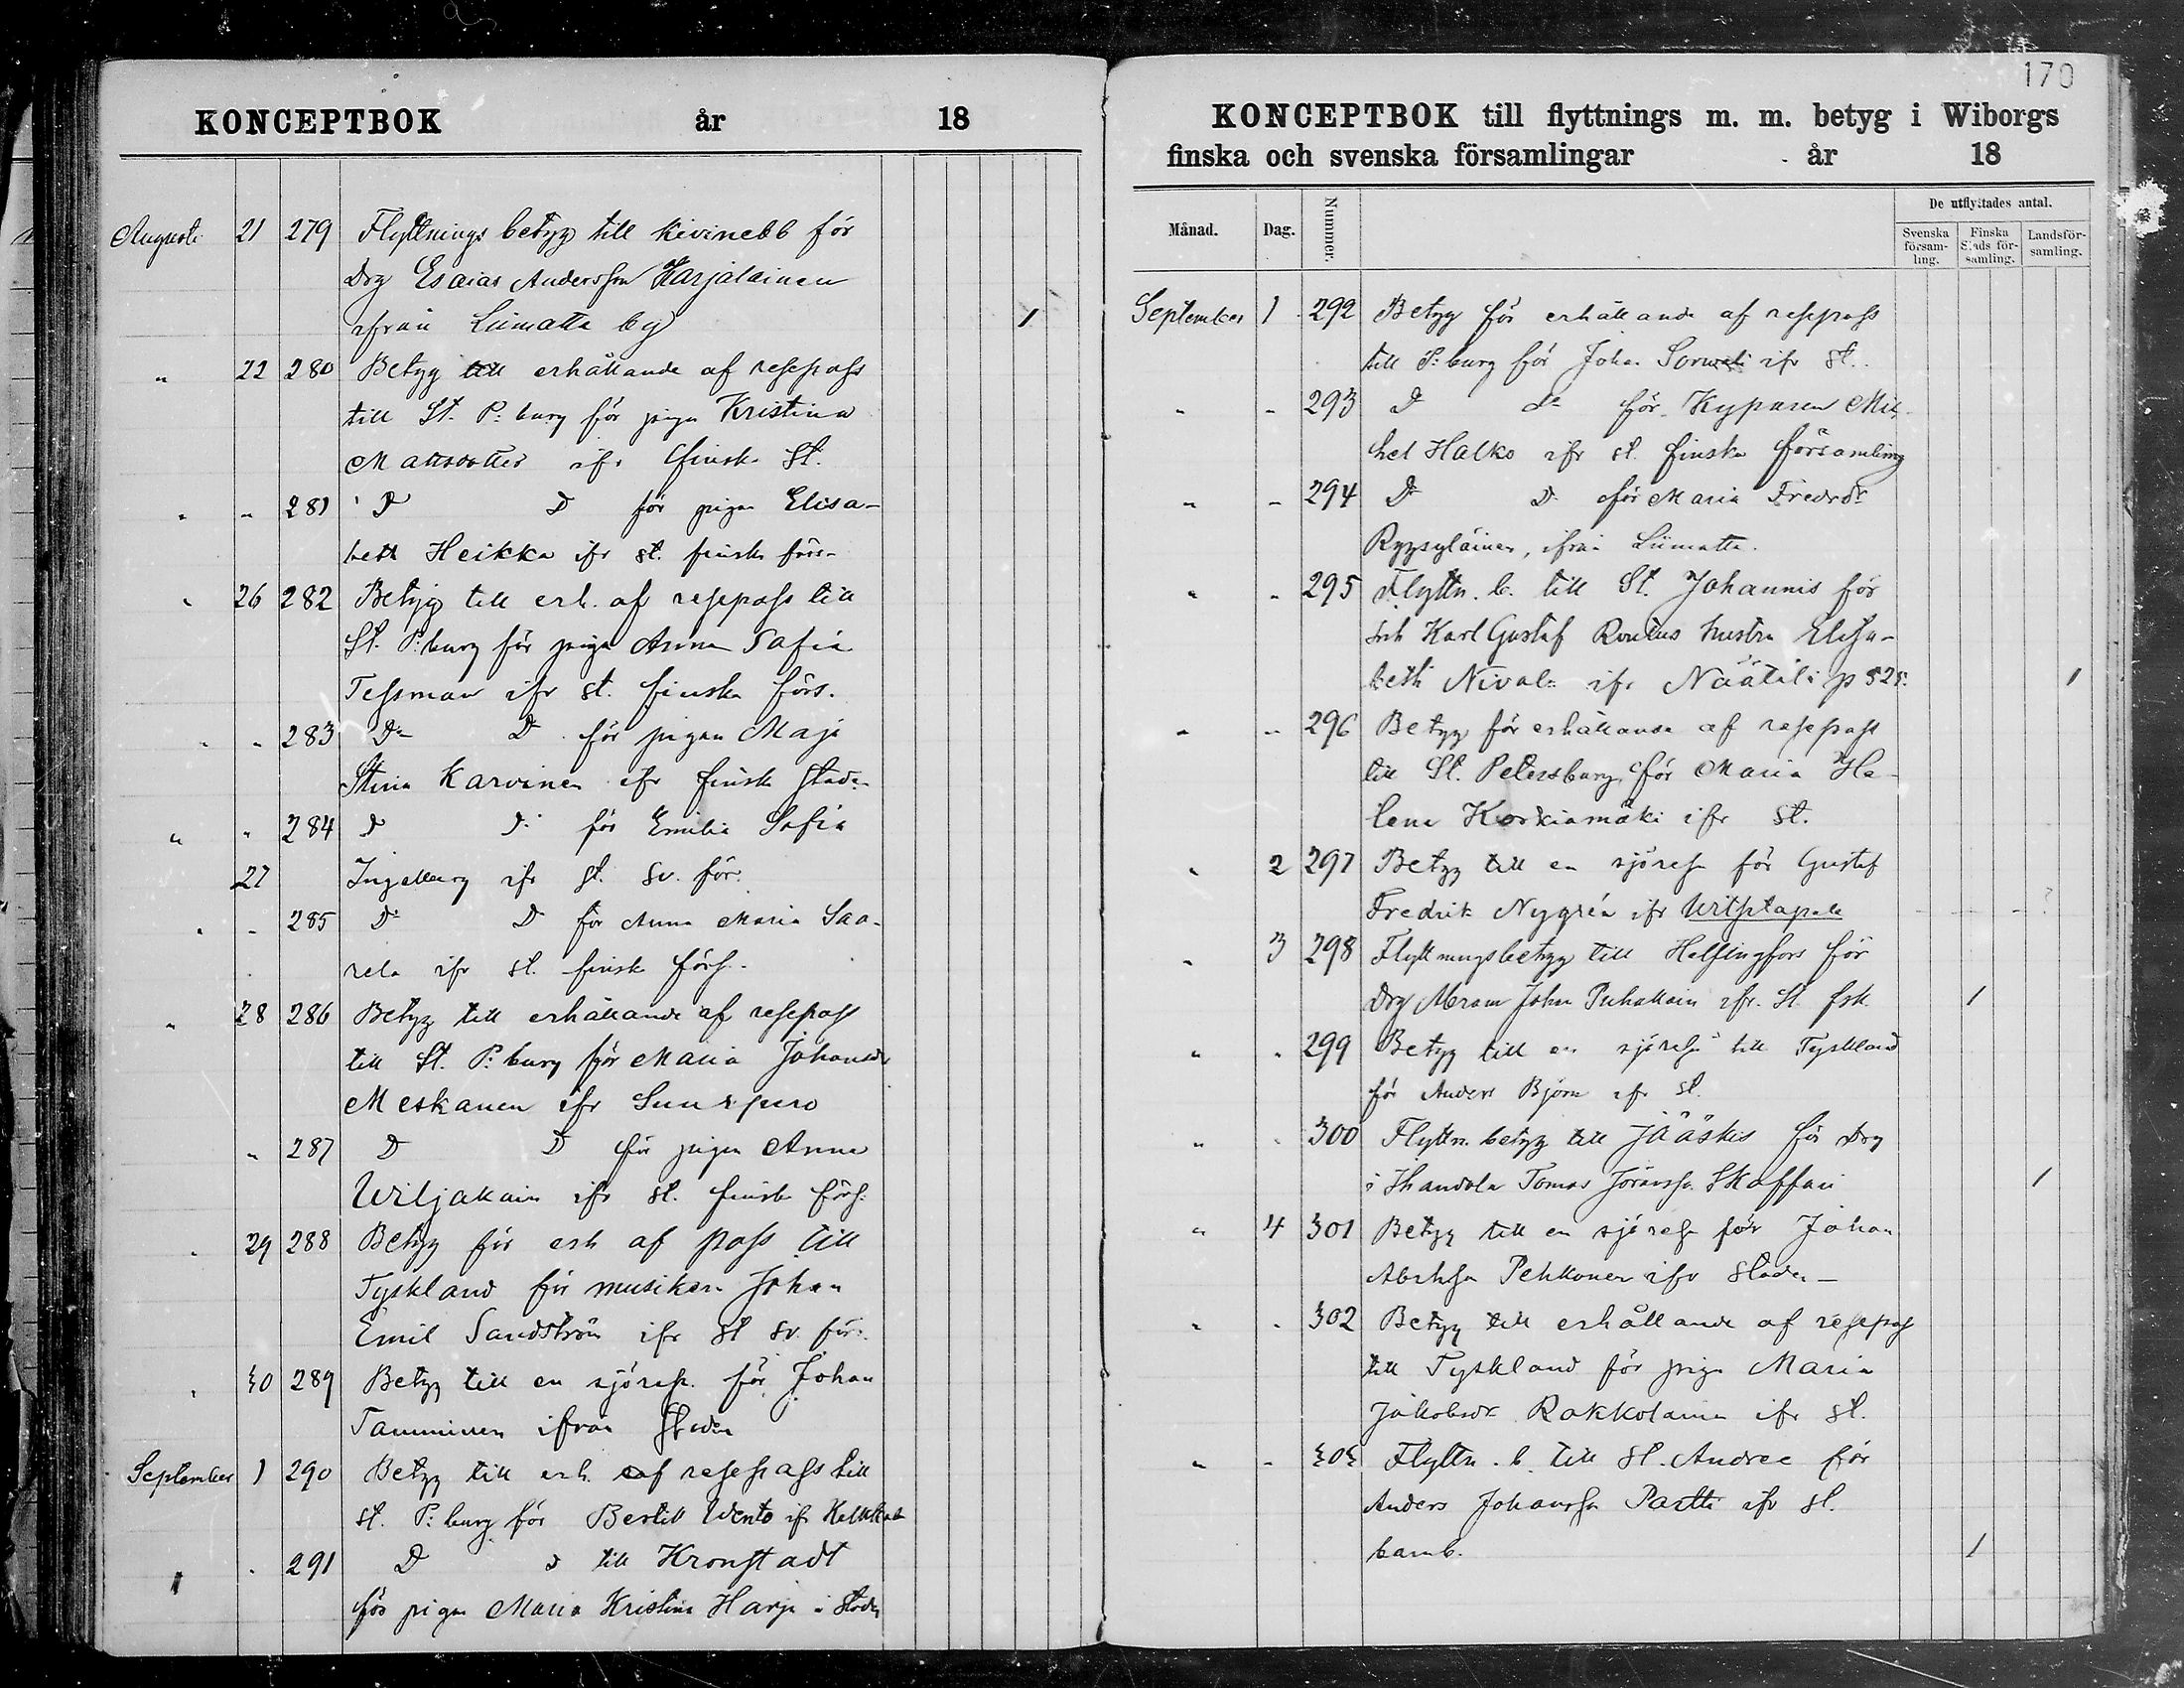 KONCEPTBOK år 18
Augusti 21 279 Flyttnings betyg till Kivinebb för
Drg Esaias Andersson Karjalainen
ifrån Liimatta by 1
" 22 280 Betyg till erhållande af resepass
till St. P:burg för pigan Kristina
Mattsdotter ifr finska St.
" " 281 D D för pigan Elisa-
beth Heikka ifr st. finska förs-
" 26 282 Betyg till erh. af resepass till
St. P:burg för pigan Anna Sofia
Tessman ifr st. finska förs.
" " 283 Do D för pigan Maja
Stina Karvinen ifr finska staden
" " 284 D D för Emilia Sofia
27 Ingelberg ifr st. sv. för.
" " 285 Do D för Anna Maria Saa-
rela ifr st. finska förs.
" 28 286 Betyg till erhållande af resepass
till St. P:burg för Maria Johansdr
Meskanen ifr Suurpero
" 287 D D för pigan Anna
Wiljakain ifr st. finska förs.
" 29 288 Betyg för erh af pass till
Tyskland för musikern Johan
Emil Sandström ifr st sv. för.
" 30 289 Betyg till en sjöresa för Johan
Tamminen ifrån staden
September 1 290 Betyg till erh. af resepass till
st. P:burg för Bertill Wento ifr
" " 291 D d till Kronstadt
för pigan Maria Kristina Harja i staden
170
KONCEPTBOK till flyttnings m. m. betyg i Wiborgs
finska och svenska församlingar år 18
Månad. Dag. Nummer. De utflyttades antal.
Svenska församling. Finska Stads församling. Landsförsamling.
September 1 292 Betyg för erhållande af resepass
till P:burg för Johan ifr st.
" " 293 D do för Kyparen Mic-
hel Halko ifr st. finska församling
" " 294 Do D för Maria Fredrdr
Ryysyläinen, ifrån Liimatta.
" " 295 Flyttn. b. till St. Johannis för
Karl Gustaf Rontus hustru Elisa-
beth Nivala ifr Näätälä p 525. 1
" " 296 Betyg för erhållande af resepass
till St. Petersburg för Maria He-
lena Korkiamäki ifr St.
" 2 297 Betyg till en sjöresa för Gustaf
Fredrik Nygrén ifr
" 3 298 Flyttningsbetyg till Helsingfors för
Drg Abram Johan Puhakain ifr. St fsk. 1
" " 299 Betyg till en sjöresa till Tyskland
för Anders Björn ifr st.
" " 300 Flyttn. betyg till Jääskis för Drg
i Ihandola Tomas Jöransson Skaffari 1
" 4 301 Betyg till en sjöresa för Johan
Abrhsn Pekkonen ifr staden
" " 302 Betyg till erhållande af resepass
till Tyskland för pigan Maria
Jakobsdr Rokkolainen ifr st.
" " 303 Flyttn. b. till St. Andree för
Anders Johansson Partti ifr st.
1